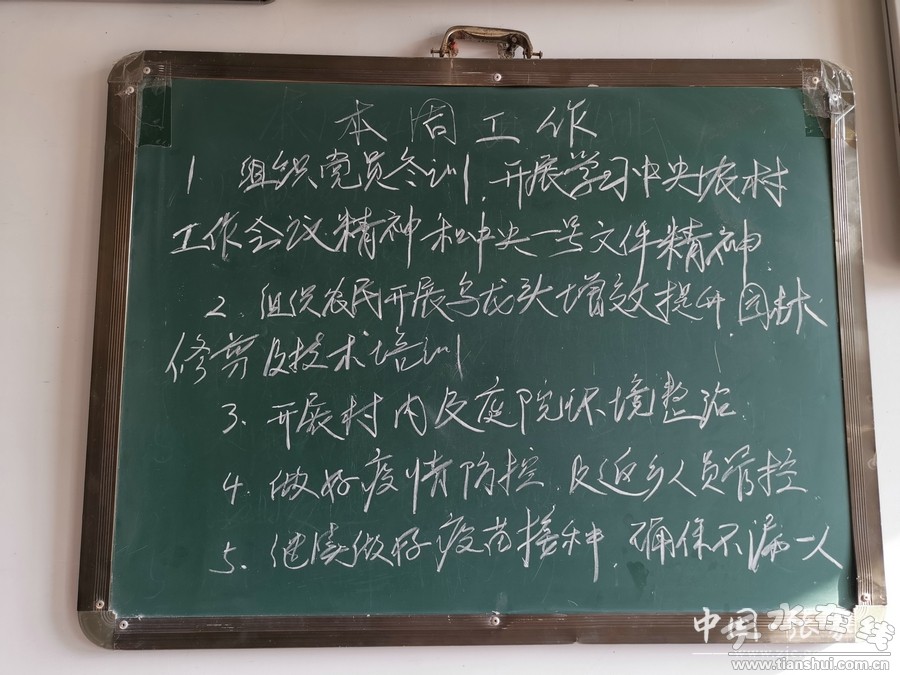 本周工作
1. 组织党员冬训,开展学习中央农村
工作会议精神和中央一号文件精神
2. 组织农民开展乌龙头增效提升,园林
修剪及技术培训
3. 开展村内及庭院环境整治
4. 做好疫情防控 及返乡人员管控
5. 继续做好疫苗接种,确保不漏一人
中国天水在线
www.tianshui.com.cn